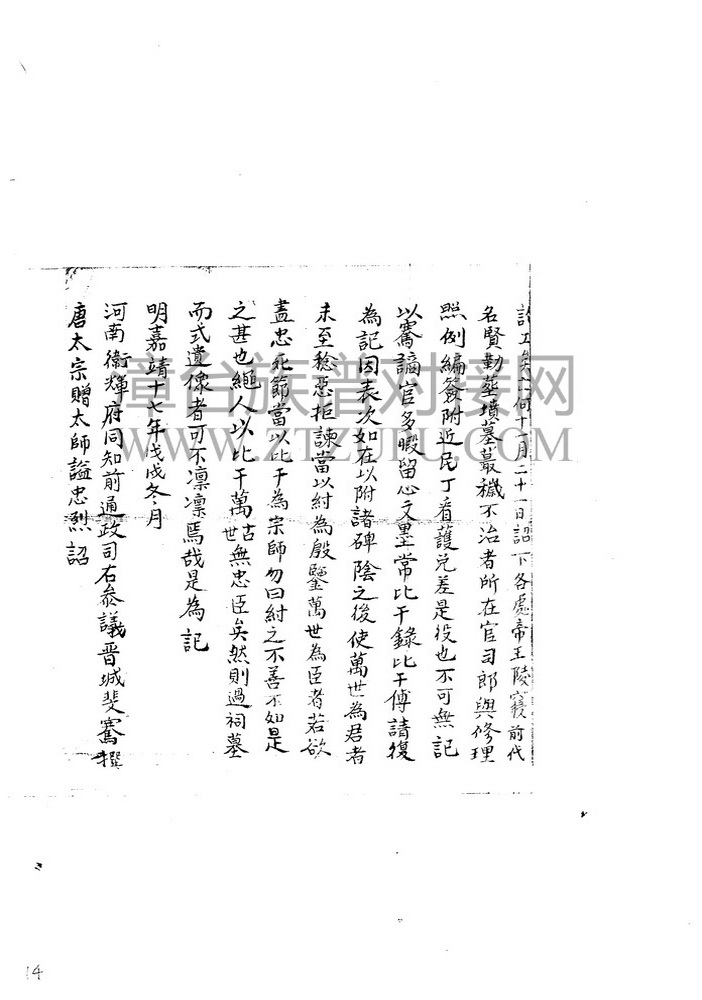 訖工矣六何十一月二十一日詔下各處帝王陵寢前代
名賢勤塟墳墓蕞穢不治者所在官司郎與修理
照例編簽附近民丁看護兌差是役也不可無記
以騫謫官多暇留心文墨常比干錄比干傅請復
為記因表次如在以附諸碑陰之後使萬世為君者
未至稔惡拒諫當以紂為殷鑒萬世為臣者若欲
盡忠死節當以比干為宗師勿曰紂之不善不如是
之甚也繩人以比干萬世古無忠臣矣然則過祠墓
而式遺像者可不凛凛焉哉是為記
明嘉靖十七年戊戌冬月
河南衛輝府同知前通政司右叅議晋城斐騫撰
唐太宗贈太師謚忠烈詔
章台族普对接网
WWW.ZTZUPU.COM
14